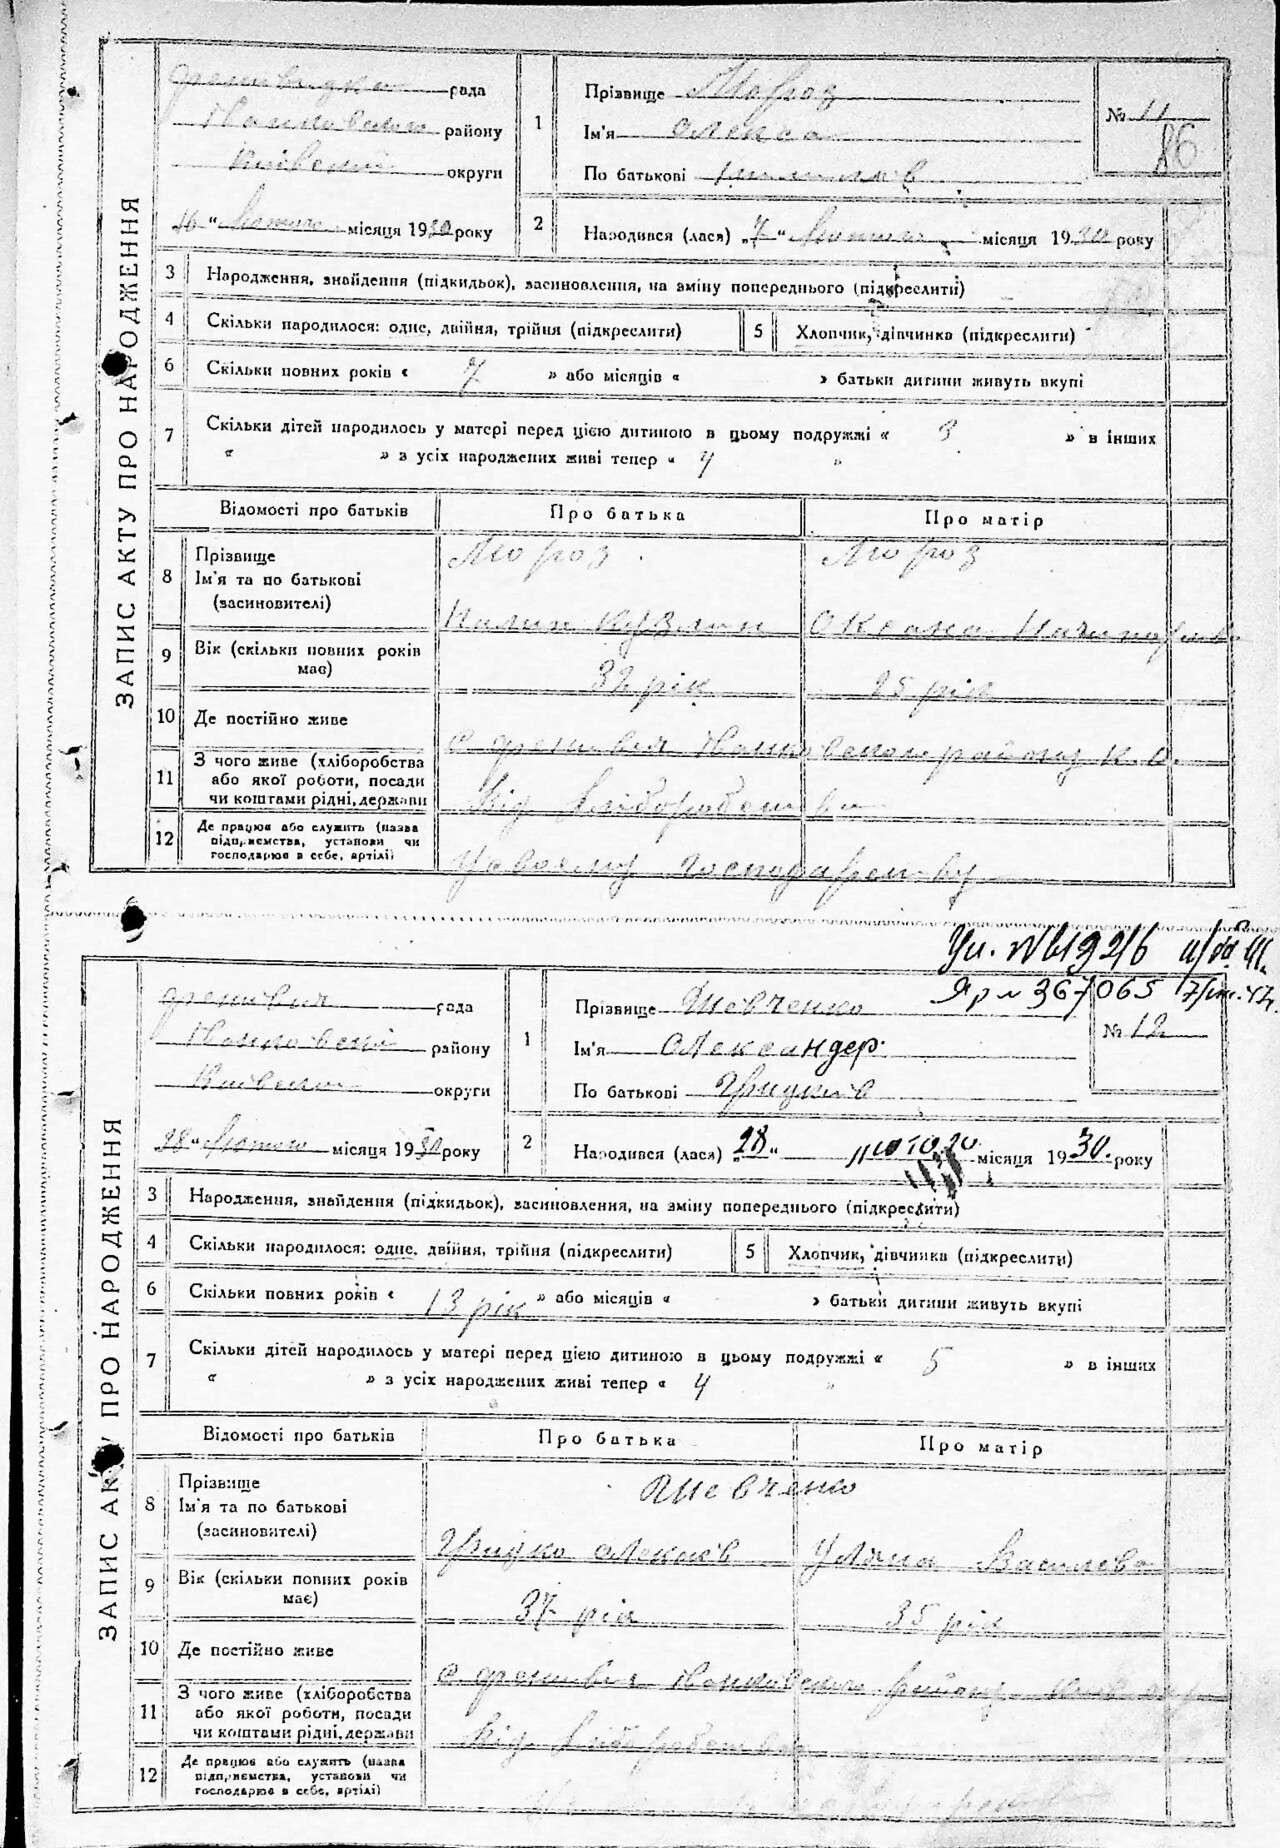 ЗАПИС АКТУ ПРО НАРОДЖЕННЯ
рада
району
округи
16 " Лютого місяця 1930 року
1
Прізвище Мороз
Ім'я Олекса
По батькові
№ 11
86
2
Народився (лася) „7" Лютого місяця 1930 року
3 Народження, знайдення (підкидьок), засиновлення, на зміну попереднього (підкреслити)
4 Скільки народилося: одне, двійня, трійня (підкреслити)
5 Хлопчик, дівчинка (підкреслити)
6 Скільки повних років « 7 » або місяців « » батьки дитини живуть вкупі
7 Скільки дітей народилось у матері перед цією дитиною в цьому подружжі « 3 » в інших
« » з усіх народжених живі тепер « 4 »
Відомості про батьків Про батька Про матір
8 Прізвище Ім'я та по батькові (засиновителі)
Мороз Мороз
Килип Кузьмин Оксана
9 Вік (скільки повних років має) 32 рік 25 рік
10 Де постійно живе
11 З чого живе (хліборобства або якої роботи, посади чи коштами рідні, держави
Від хліборобства
12 Де працює або служить (назва підприємства, установи чи господарює в себе, артілі)
У своєму господарству
Яр № 367065
ЗАПИС АКТУ ПРО НАРОДЖЕННЯ
рада
району
округи
28 " Лютого місяця 1930 року
1
Прізвище Шевченко
Ім'я Олександер
По батькові Грицьків
№ 12
2
Народився (лася) „28" лютого місяця 1930. року
3 Народження, знайдення (підкидьок), засиновлення, на зміну попереднього (підкреслити)
4 Скільки народилося: одне, двійня, трійня (підкреслити)
5 Хлопчик, дівчинка (підкреслити)
6 Скільки повних років « 13 рік » або місяців « » батьки дитини живуть вкупі
7 Скільки дітей народилось у матері перед цією дитиною в цьому подружжі « 5 » в інших
« » з усіх народжених живі тепер « 4 »
Відомості про батьків Про батька Про матір
8 Прізвище Ім'я та по батькові (засиновителі)
Шевченко
Грицко Уляна Василева
9 Вік (скільки повних років має) 37 рік 35 рік
10 Де постійно живе
11 З чого живе (хліборобства або якої роботи, посади чи коштами рідні, держави
Від хліборобства
12 Де працює або служить (назва підприємства, установи чи господарює в себе, артілі)